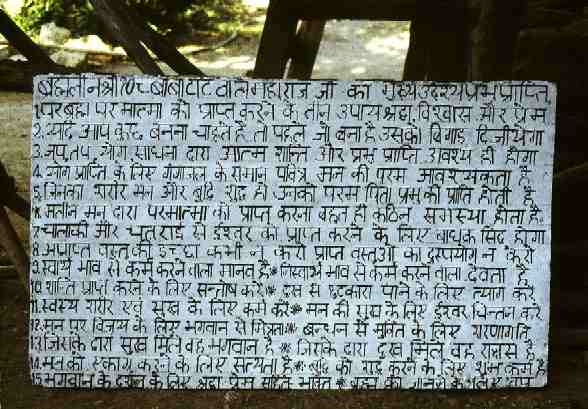 ब्रह्मलीन श्री १०८ बाबा टाट वाले महाराज जी का मुख्य उद्देश्य प्रभु प्राप्ति
1. पर ब्रह्म परमात्मा को प्राप्त करने के तीन उपाय श्रद्धा, विश्वास और प्रेम
2. यदि आप कुछ बनना चाहते हैं तो पहले जो बना है उसको बिगाड़ दिजीयेगा
3. जप, तप, योग, साधना द्वारा आत्म शान्ति और प्रभु प्राप्ति अवश्य ही होगा
4. योग प्राप्ति के लिए गंगाजल के समान पवित्र मन की परम आवश्यकता है
5. जिनका शरीर मन और बुद्धि शुद्ध हो उनको परम पिता प्रभु की प्राप्ति होती है
6. मलीन मन द्वारा परमात्मा को प्राप्त करना बहुत ही कठिन समस्या होता है
7. चालाकी और चतुराई से ईश्वर को प्राप्त करने के लिए बाधक सिद्ध होगा
8. अप्राप्त वस्तु की इच्छा कभी न करो प्राप्त वस्तुओं का दुरुपयोग न करो
9. स्वार्थ भाव से कर्म करने वाला मानव है * निस्वार्थ भाव से कर्म करने वाला देवता है
10. शान्ति प्राप्त करने के लिए सन्तोष करें * से छुटकारा पाने के लिए त्याग करें
11. स्वस्थ शरीर एवं सुख के लिए कर्म करें * मन की सुख के लिए ईश्वर चिन्तन करें
12. मन पर विजय के लिए भगवान से मित्रता * बन्धन से मुक्ति के लिए शरणागति
13. जिसके द्वारा सुख मिले वह भगवान है * जिसके द्वारा दुख मिले वह राक्षस है
14. मन को एकाग्र करने के लिए सत्यता है * बुद्धि को शुद्ध करने के लिए शुभ कर्म है
15. भगवान के दर्शन के लिए श्रद्धा प्रेम सहित भक्ति * के लिए